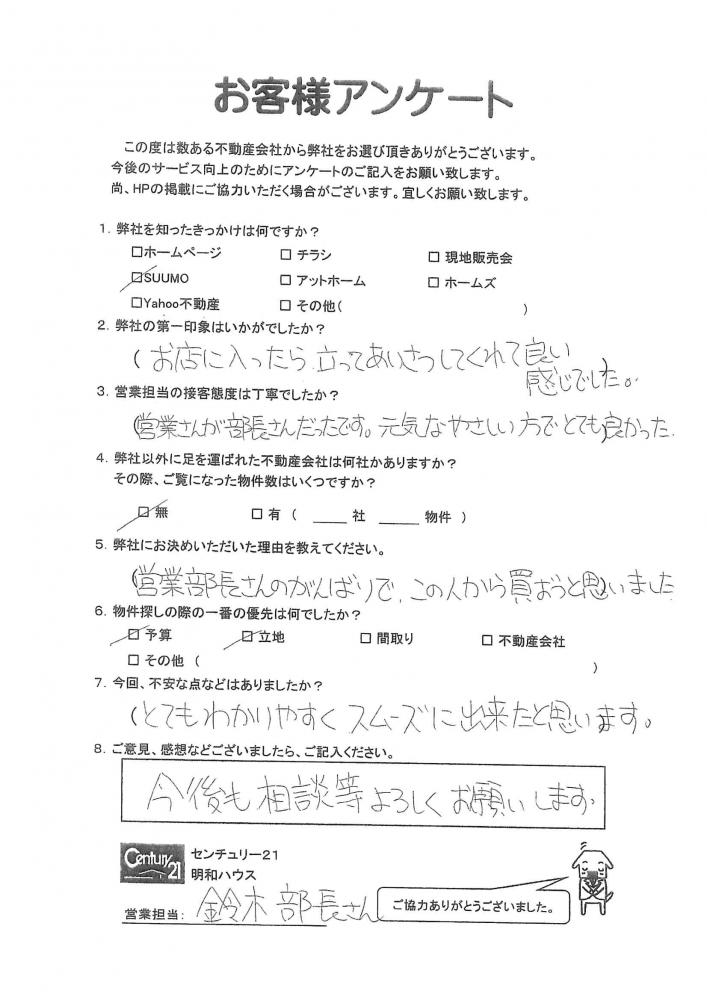 お客様アンケート
この度は数ある不動産会社から弊社をお選び頂きありがとうございます。
今後のサービス向上のためにアンケートのご記入をお願い致します。
尚、HPの掲載にご協力いただく場合がございます。宜しくお願い致します。
1. 弊社を知ったきっかけは何ですか?
□ホームページ □ チラシ □ 現地販売会
□SUUMO □ アットホーム □ ホームズ
□Yahoo不動産 □ その他( )
2. 弊社の第一印象はいかがでしたか?
(お店に入ったら 立ってあいさつしてくれて良い)
感じでした。
3. 営業担当の接客態度は丁寧でしたか?
(営業さんが部長さんだったです。元気なやさしい方でとても)良かった.
4. 弊社以外に足を運ばれた不動産会社は何社かありますか?
その際、ご覧になった物件数はいくつですか?
□ 無 □ 有 ( ____ 社 ____ 物件 )
5. 弊社にお決めいただいた理由を教えてください。
(営業部長さんのがんばりで、この人から買おうと思)いました
6. 物件探しの際の一番の優先は何でしたか?
□ 予算 □ 立地 □ 間取り □ 不動産会社
□ その他 ( )
7. 今回、不安な点などはありましたか?
(とてもわかりやすく スムーズに出来たと思います。
8. ご意見、感想などございましたら、ご記入ください。
今後も相談等よろしくお願いします.
Century 21
センチュリー21
明和ハウス
営業担当: 鈴木部長さん
ご協力ありがとうございました。